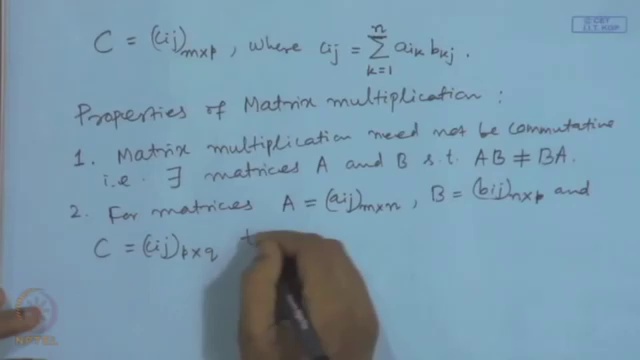 © CET
I.I.T. KGP
C = (cij)m×p, where cij = n∑k=1 aik bkj.
Properties of Matrix multiplication :
1. Matrix multiplication need not be commutative
i.e. ∃ matrices A and B s.t. AB ≠ BA.
2. For matrices A = (aij)m×n, B = (bij)n×p and
C = (cij)p×q t
NPTEL